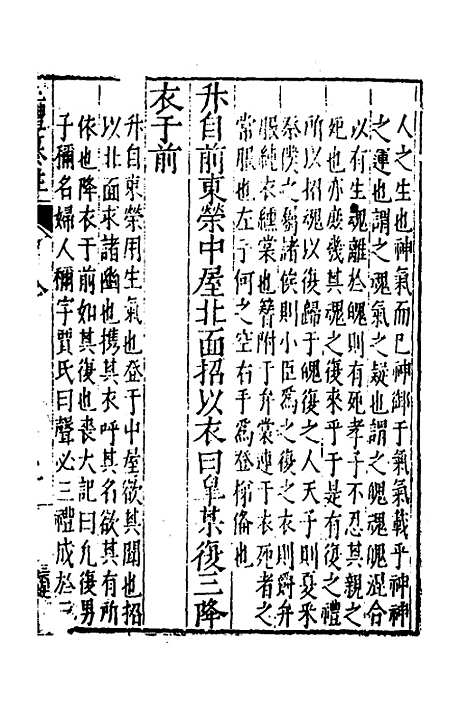 人之生也神氣而已神御于氣氣載乎神神
之運也謂之魂氣之疑也謂之魄魂魄混合
以有生魂離於魄則有死孝子不忍其親之
死也亦庶幾其魂之復來乎于是有復之禮
所以招魂以復歸于魄復之人天子則夏采
祭僕之屬諸侯則小臣為之復之衣則爵弁
服純衣纁裳也簪附于弁裳連于衣死者之
常服也左于何之空右手為登梯備也
升自前東榮中屋北面招以衣曰皐某復三降
衣于前
升自東榮用生氣也登于中屋欲其聞也招
以北面求諸幽也攜其衣呼其名欲其有所
依也降衣于前如其復也喪大記曰凡復男
子稱名婦人稱字賈氏曰聲必三禮成於三